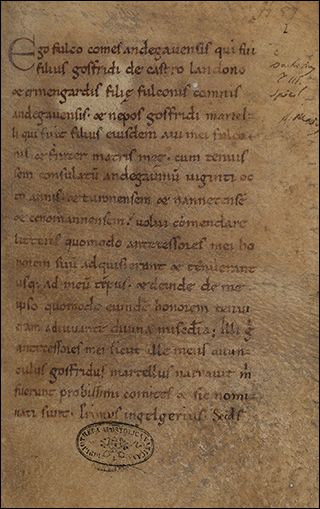 Ego fulco comes andegavensis qui fui
filius gosfridi de castro landono
& ermengardis filię fulconis comitis
andegavensis. & nepos gosfridi martel-
li qui fuit filius eiusdem avi mei fulco-
nis & frater matris meę. cum tenuis-
sem consulatū andegavinū viginti oc
to annis. & turonensem & nannetensē
& cenomannensem. volui cōmendare
litteris quomodo antecessores mei ho
norem suū adquisierant & tenuerant
usq; ad meū tēpus. & deinde de me
ipso quomodo eundē honorem tenui
eram adiuvante divina misedia; Illi g̊
antecessores mei sicut ille meus avun-
culus gosfridus martellus narravit m̄
fuerunt probissimi comites & sic nomi
nati sunt. Primus ingelgerius. Scds
I
BIBLIOTHECA APOSTOLICA VATICANA